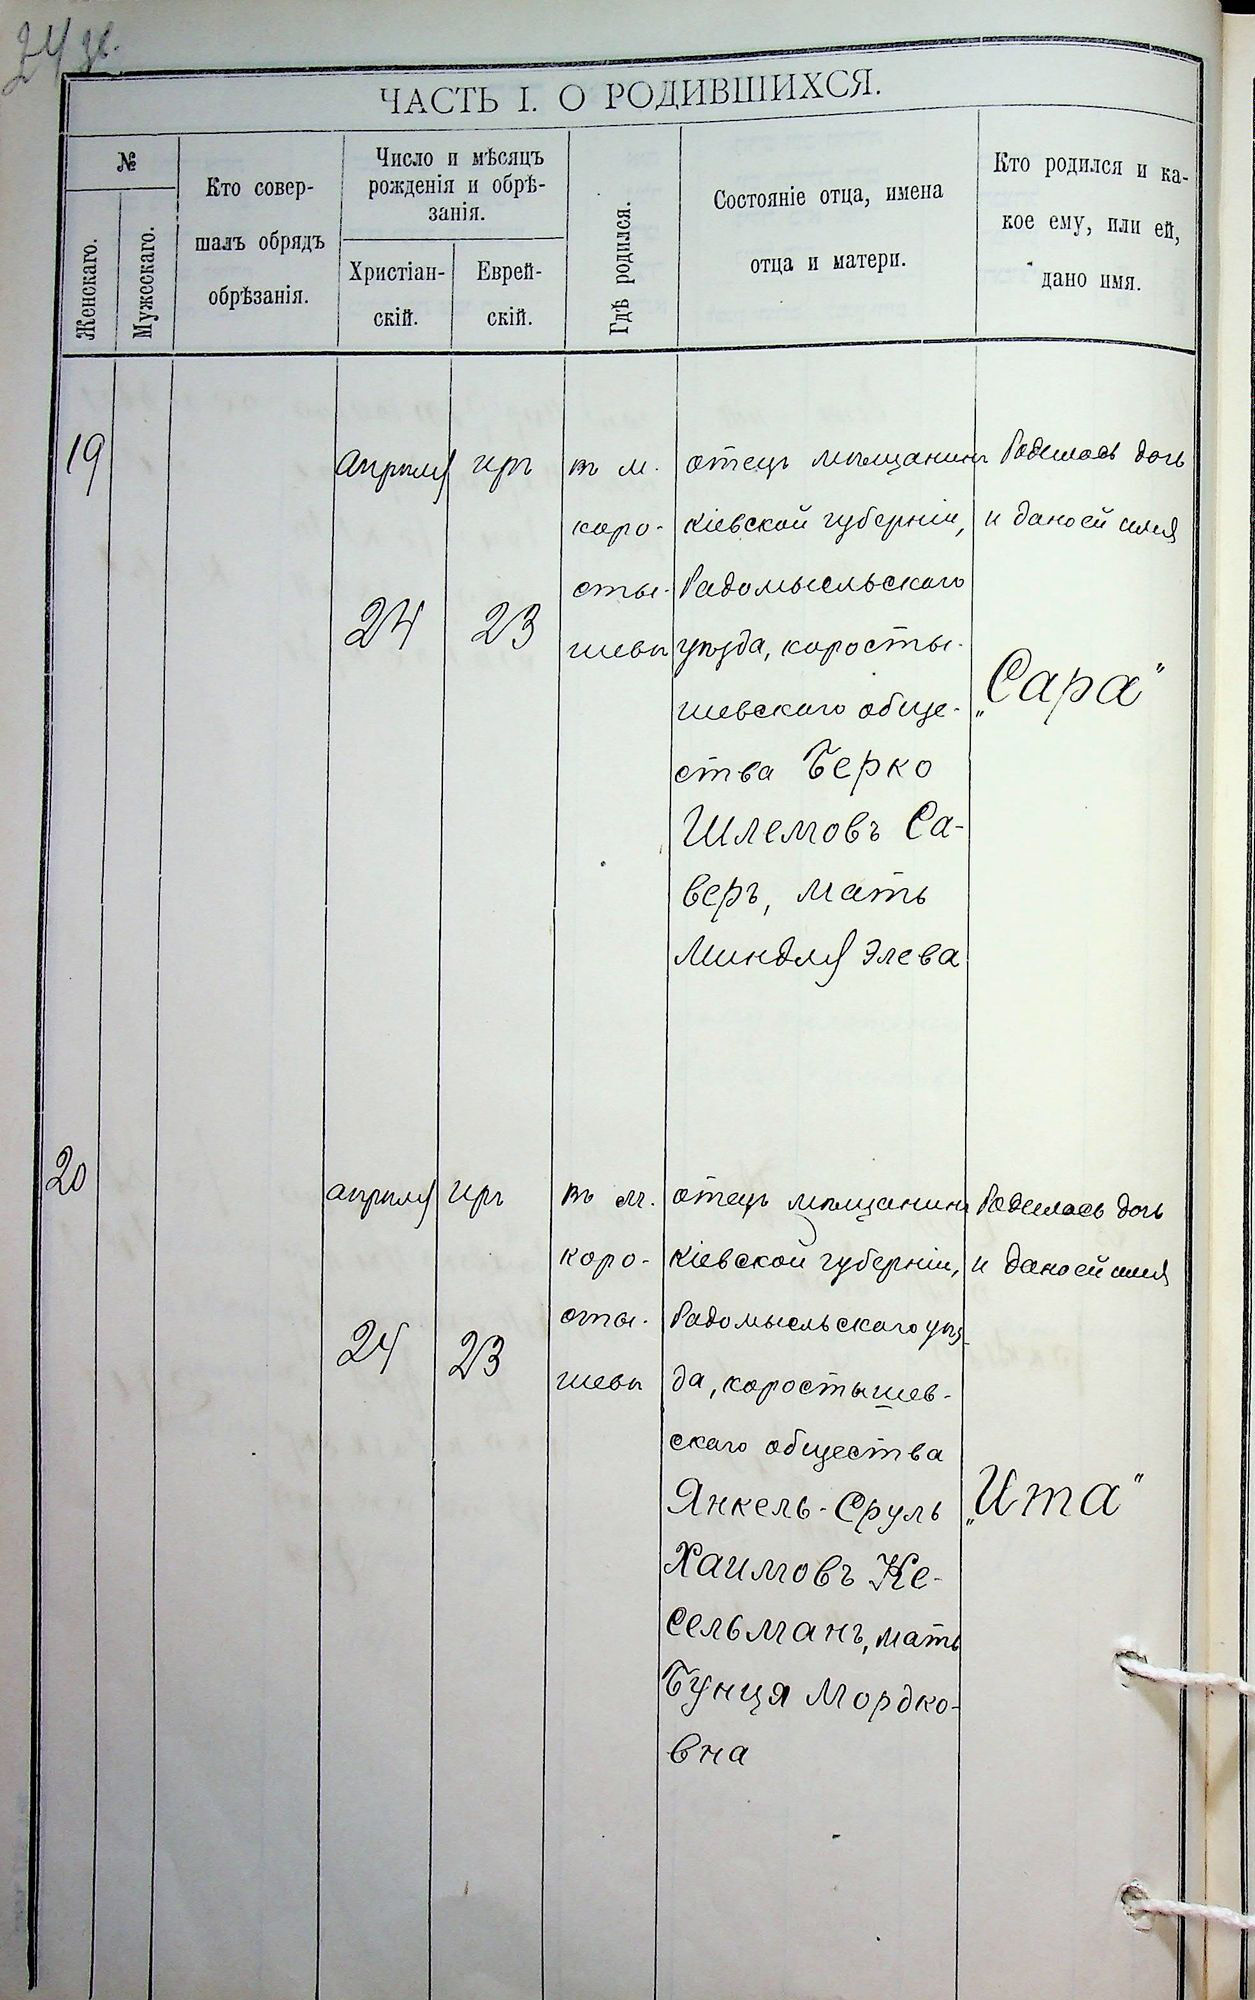 24 зв.
ЧАСТЬ I. О РОДИВШИХСЯ.
№
Женскаго.
Мужескаго.
Кто совер-
шалъ обрядъ
обрѣзанія.
Число и мѣсяцъ
рожденія и обрѣ-
занія.
Христіан-
скій.
Еврей-
скій.
Гдѣ родился.
Состояніе отца, имена
отца и матери.
Кто родился и ка-
кое ему, или ей,
дано имя.
19
апрѣля
24
иръ
23
въ м.
коро-
сты-
шевѣ
отецъ мѣщанинъ
кіевской губерніи,
Радомысльскаго
уѣзда, коросты-
шевскаго обще-
ства Берко
Шлемовъ Са-
веръ, мать
Миндля Элева
Родилась дочь
и дано ей имя
„Сара"
20
апрѣля
24
иръ
23
въ м.
коро-
сты-
шевѣ
отецъ мѣщанинъ
кіевской губерніи,
Радомысльскаго уѣз-
да, коростышев-
скаго общества
Янкель-Сруль
Хаимовъ Ке-
сельманъ, мать
Бунця Мордко-
вна
Родилась дочь
и дано ей имя
„Ита"